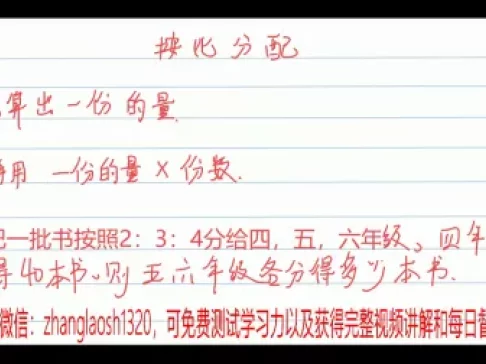 按比分配
算出一份的量
用 一份的量×份数.
把一批书按照2：3：4分给四，五，六年级、四年
得40本书。则五六年级各分得多少本书.
微信：zhanglaosh1320，可免费测试学习力以及获得完整视频讲解和每日督